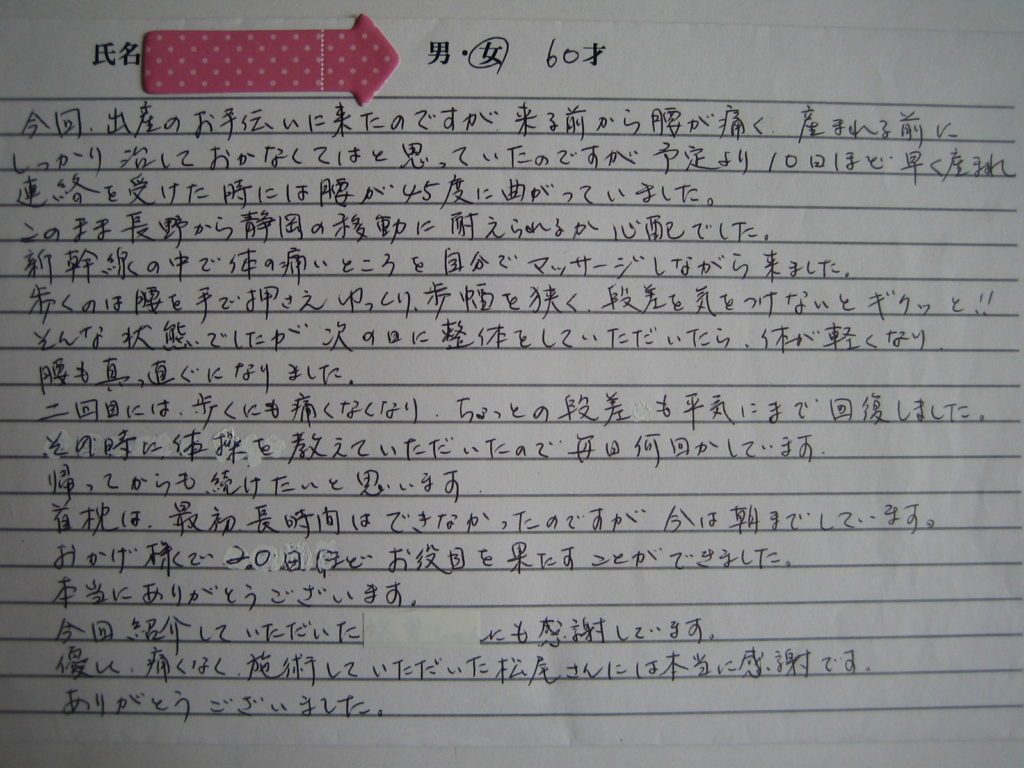 氏名 男・女 60才
今回、出産のお手伝いに来たのですが、来る前から腰が痛く、産まれる前に
しっかり治しておかなくてはと思っていたのですが予定より10日ほど早く産まれ
連絡を受けた時には腰が45度に曲がっていました。
このまま長野から静岡の移動に耐えられるか心配でした。
新幹線の中で体の痛いところを自分でマッサージしながら来ました。
歩くのは腰を手で押さえゆっくり、歩幅を狭く、段差を気をつけないとギクッと!!
そんな状態でしたが次の日に整体をしていただいたら、体が軽くなり、
腰も真っ直ぐになりました。
二回目には、歩くにも痛くなくなり、ちょっとの段差も平気にまで回復しました。
その時に体操を教えていただいたので毎日何回かしています。
帰ってからも続けたいと思います。
首枕は、最初長時間はできなかったのですが今は朝までしています。
おかげ様で20日ほどお役目を果たすことができました。
本当にありがとうございます。
今回紹介していただいた にも感謝しています。
優しく、痛くなく、施術していただいた松尾さんには本当に感謝です。
ありがとうございました。